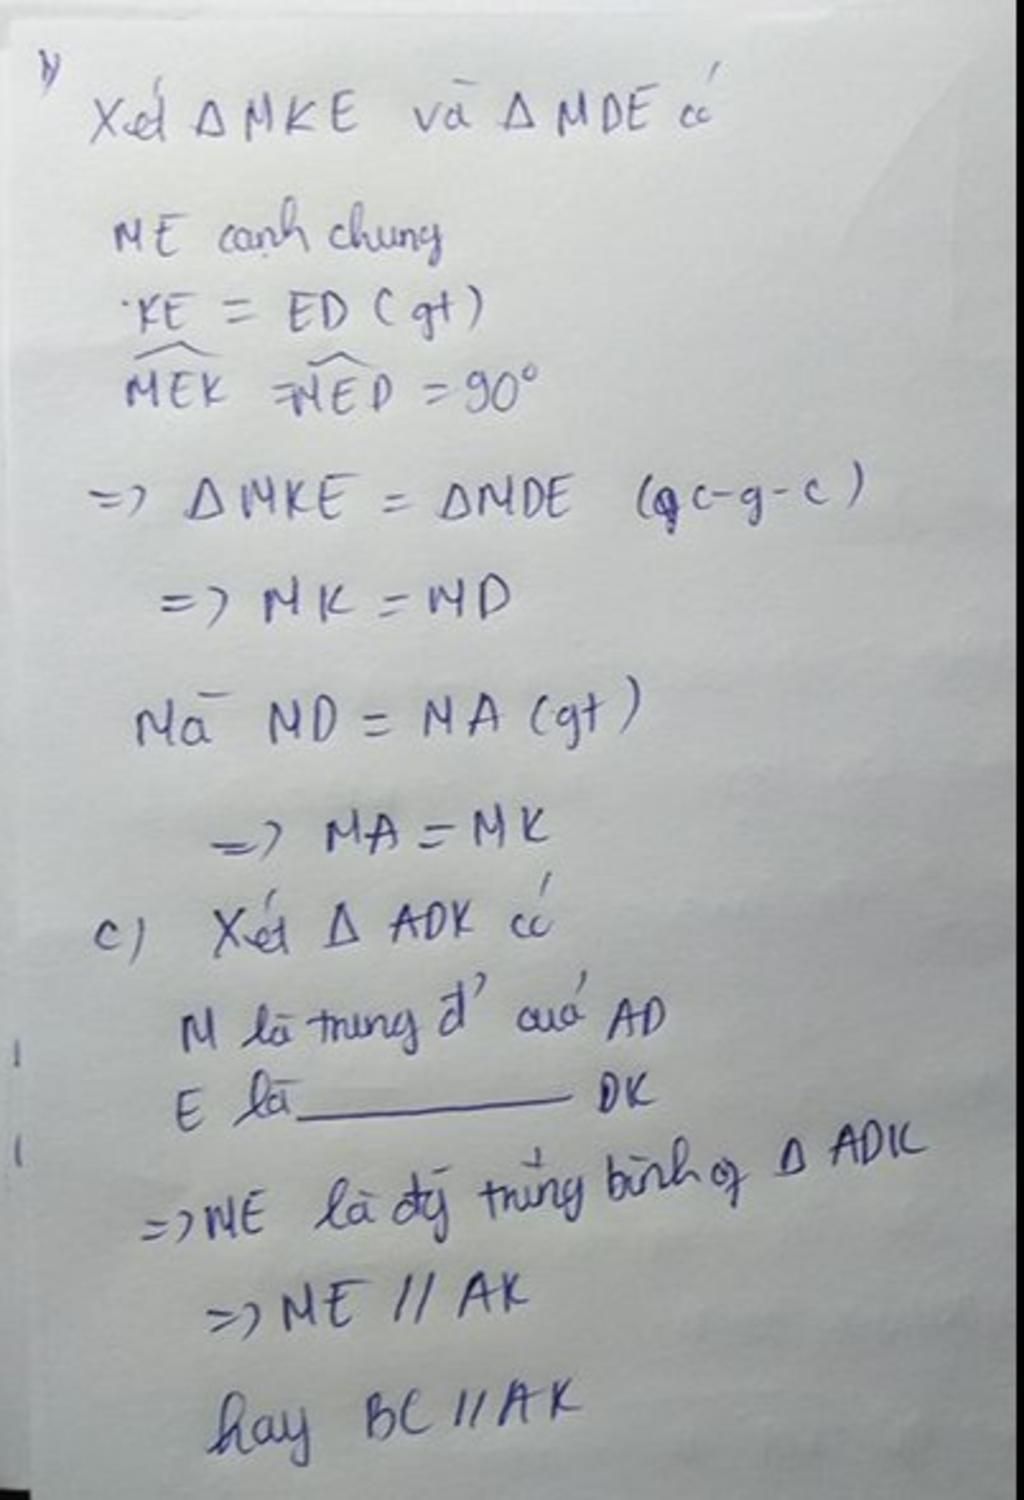 b)
Xét Δ MKE và Δ MDE có
ME cạnh chung
KE = ED (gt)
MEK = MED = 90°
=> Δ MKE = ΔMDE (c-g-c)
=> MK = MD
Mà MD = MA (gt)
=> MA = MK
c) Xét Δ ADK có
M là trung đ' của AD
E là ———— DK
=> ME là đg trung bình of Δ ADK
=> ME // AK
hay BC // AK